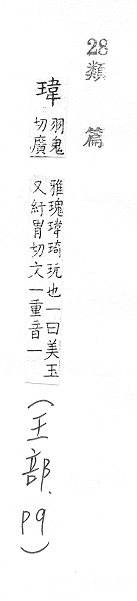 28類篇
瑋
羽鬼
切廣
雅瑰瑋琦玩也一曰美玉
又紆胃切文一重音一
(王部.
p9)